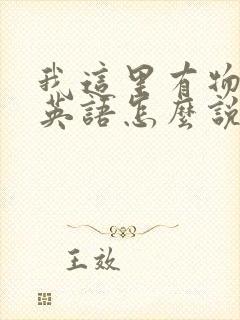 我這里有物
英語怎麼說
王效